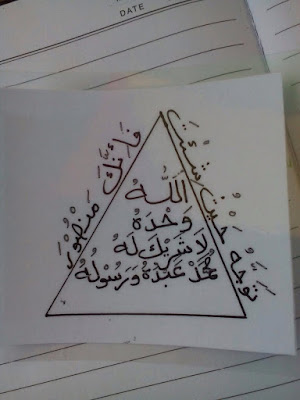 DATE
اَللّٰهُ
وَحْدَهُ
لَا شَرِيْكَ لَهُ
مُحَمَّدْ عَبْدُهُ وَرَسُوْلُهُ
تَوَجَّهْ حَيْثُ شِئْتَ
فَإِنَّكَ مَنْصُوْرٌ